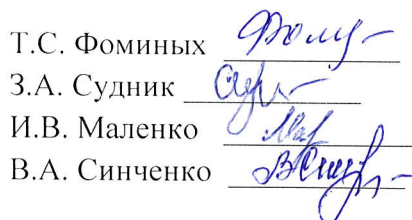 Т.С. Фоминых
З.А. Судник
И.В. Маленко
В.А. Синченко